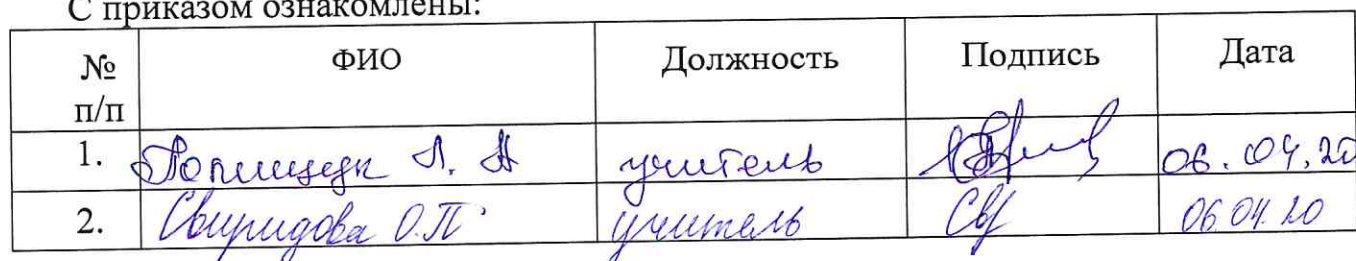 С приказом ознакомлены:
№ п/п ФИО Должность Подпись Дата
1. А. А учитель 06.04.20
2. Свиридова О.П учитель Свр 06.04.20